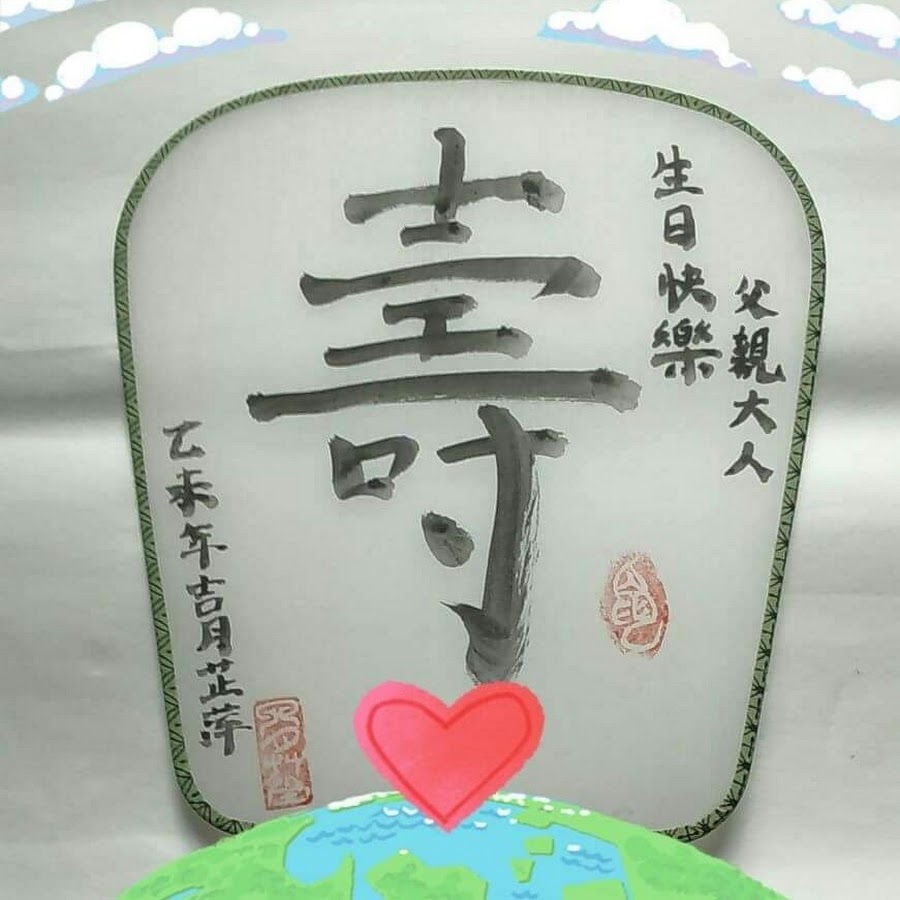 父親大人
生日快樂
壽
乙未年吉月芷萍